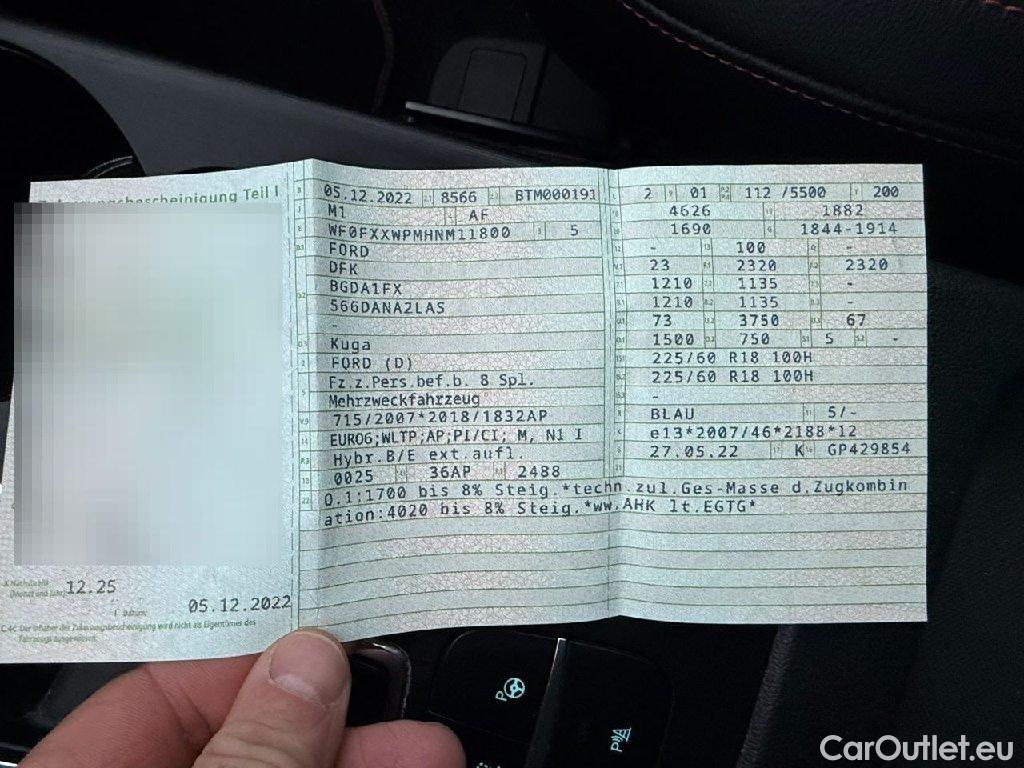 Zulassungsbescheinigung Teil I
12.25
05.12.2022
C.4c Der Inhaber der Zulassungsbescheinigung wird nicht als Eigentümer des
Fahrzeugs ausgewiesen.
05.12.2022 8566 BTM000191
M1 AF
WF0FXXWPMHNM11800 5
FORD
DFK
BGDA1FX
5G6DANA2LAS
-
Kuga
FORD (D)
Fz.z.Pers.bef.b. 8 Spl.
Mehrzweckfahrzeug
715/2007*2018/1832AP
EURO6;WLTP;AP;PI/CI; M, N1 I
Hybr.B/E ext.aufl.
0025 36AP 2488
2 01 112 /5500 200
4626 1882
1690 1844-1914
- 100 -
23 2320 2320
1210 1135 -
1210 1135 -
73 3750 67
1500 750 5 -
225/60 R18 100H
225/60 R18 100H
-
BLAU 5/-
e13*2007/46*2188*12
27.05.22 K GP429854
O.1:1700 bis 8% Steig.*techn.zul.Ges-Masse d.Zugkombin
ation:4020 bis 8% Steig.*ww.AHK lt.EGTG*
P
P
CarOutlet.eu